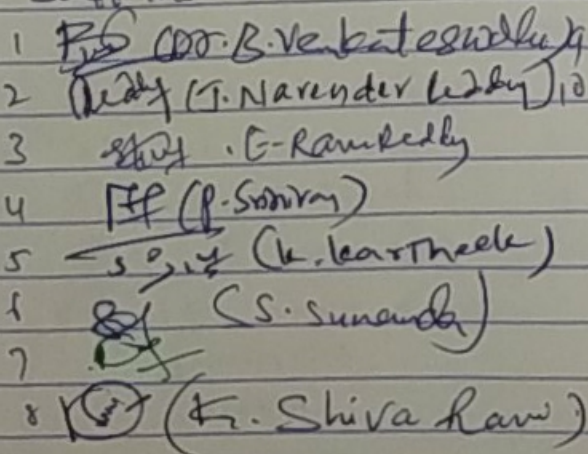 1 (Dr. B. Venkateswarlu) 9
2 (T. Narender Reddy) 10
3 . E. Ram Reddy
4 (P. Srinivas)
5 (K. Kartheek)
6 (S. Sunanda)
7
8 (K. Shiva Ram)